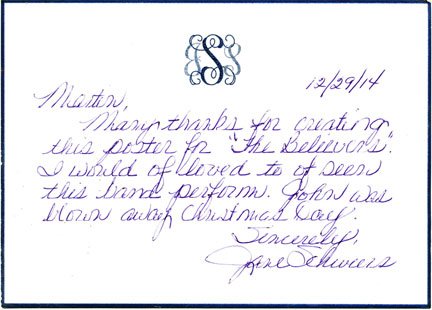 S
12/29/14
Marten,
Many thanks for creating
this poster for "The Believers".
I would of loved to of seen
this band perform. John was
blown away Christmas Day.
Sincerely,
Jane Schwiers